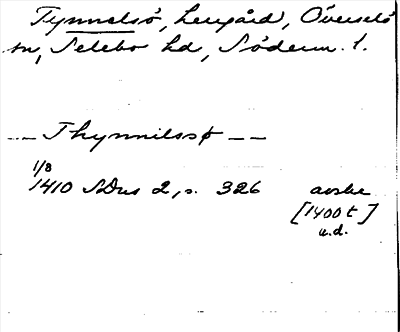 Tynnelsö, herrgård, Överselö
sn, Selebo hd, Söderm. l.
-- Thynnilssø --
1/8
1410 SDns 2, s. 326 avskr
[1400 t]
u.d.